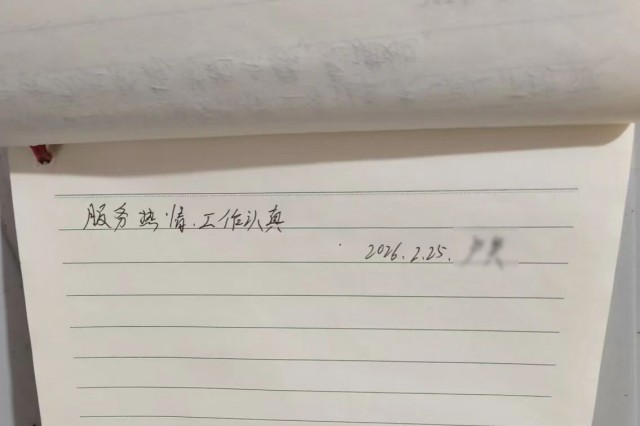 服务热情.工作认真
2026.2.25.